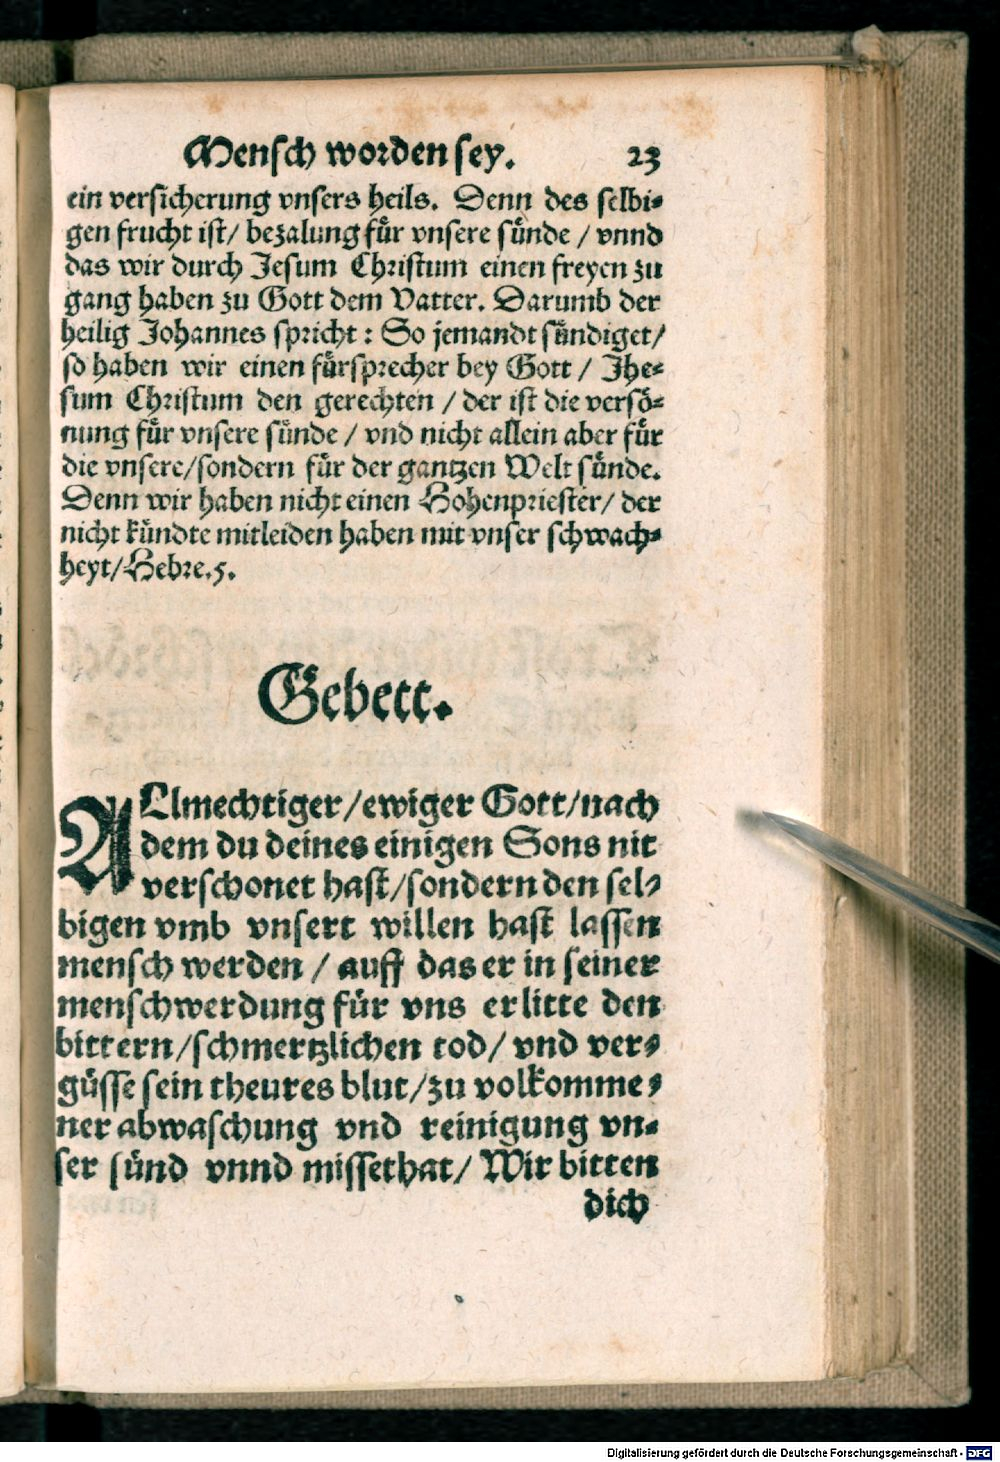 Mensch worden sey. 23
ein versicherung vnsers heils. Denn des selbi-
gen frucht ist/ bezalung fuͤr vnsere suͤnde / vnnd
das wir durch Jesum Christum einen freyen zu
gang haben zu Gott dem Vatter. Darumb der
heilig Johannes spricht : So jemandt suͤndiget/
so haben wir einen fuͤrsprecher bey Gott / Jhe-
sum Christum den gerechten / der ist die versoͤ-
nung fuͤr vnsere suͤnde / vnd nicht allein aber fuͤr
die vnsere/sondern fuͤr der gantzen Welt suͤnde.
Denn wir haben nicht einen Hohenpriester/ der
nicht kuͤndte mitleiden haben mit vnser schwach-
heyt/Hebre.5.
Gebett.
ALlmechtiger/ewiger Gott/nach
dem du deines einigen Sons nit
verschonet hast/sondern den sel-
bigen vmb vnsert willen hast lassen
mensch werden / auff das er in seiner
menschwerdung fuͤr vns erlitte den
bittern/schmertzlichen tod/ vnd ver-
guͤsse sein theures blut/zu volkomme-
ner abwaschung vnd reinigung vn-
ser suͤnd vnnd missethat/ Wir bitten
dich
Digitalisierung gefördert durch die Deutsche Forschungsgemeinschaft - DFG